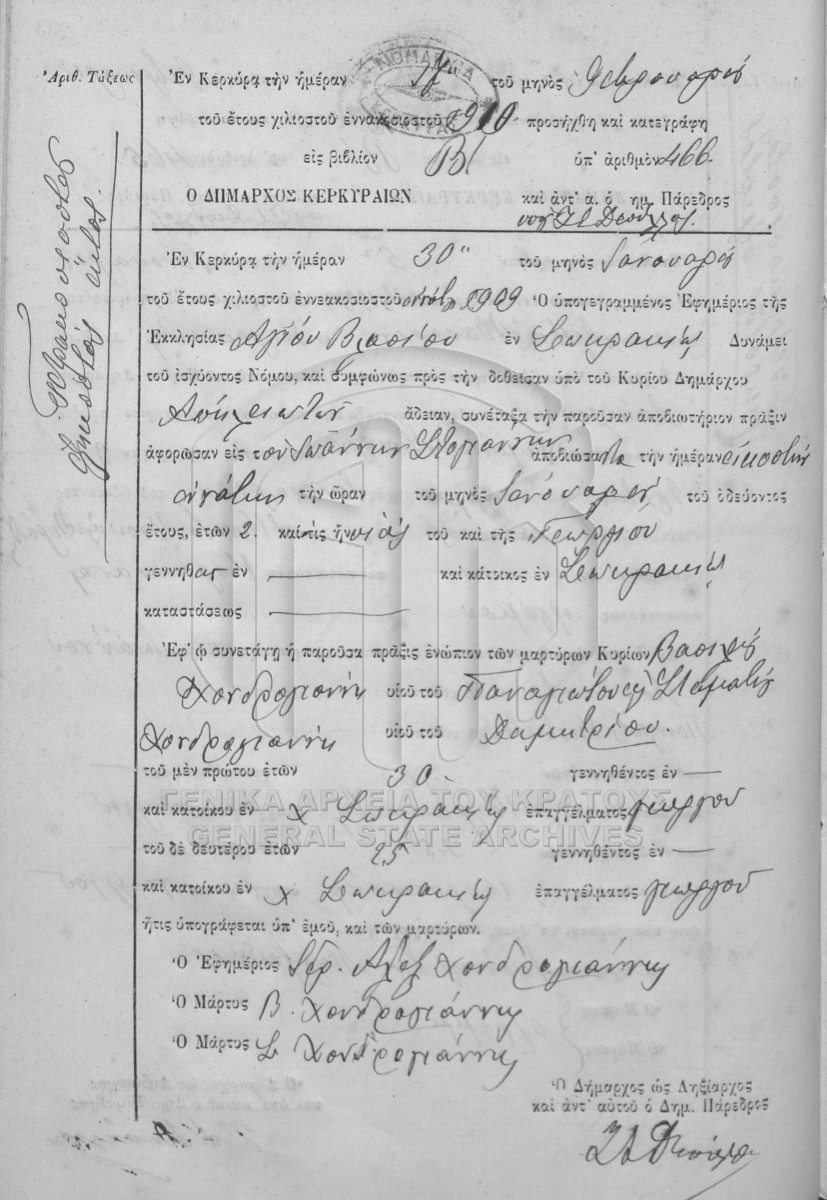 Ἀριθ. Τάξεως
Ἐν Κερκύρᾳ τὴν ἡμέραν τοῦ μηνὸς Φεβρουαρίου
τοῦ ἔτους χιλιοστοῦ ἐννακοσιοστοῦ 1910 προσήχθη καὶ κατεγράφη
εἰς βιβλίον Β/ ὑπ' ἀριθμὸν 466.
Ο ΔΗΜΑΡΧΟΣ ΚΕΡΚΥΡΑΙΩΝ καὶ ἀντ' α. ὁ δημ. Πάρεδρος
Ἐν Κερκύρᾳ τὴν ἡμέραν 30" τοῦ μηνὸς Ιανουαρίου
τοῦ ἔτους χιλιοστοῦ ἐννεακοσιοστοῦ 1909 Ὁ ὑπογεγραμμένος Ἐφημέριος τῆς
Ἐκκλησίας Αγίου Βλασίου ἐν Σωκρακίῳ Δυνάμει
τοῦ ἰσχύοντος Νόμου, καὶ συμφώνως πρὸς τὴν δοθεῖσαν ὑπὸ τοῦ Κυρίου Δημάρχου
ἄδειαν, συνέταξα τὴν παροῦσαν ἀποβιωτήριον πρᾶξιν
ἀφορῶσαν εἰς τὸν Ἰωάννην ἀποβιώσαντα τὴν ἡμέραν εἰκοστὴν
ἐνάτην τὴν ὥραν τοῦ μηνὸς Ιανουαρίου τοῦ ὁδεύοντος
ἔτους, ἐτῶν 2. καὶ τίς ἦν υἱὸς τοῦ καὶ τῆς Γεωργίου
γεννηθεὶς ἐν καὶ κάτοικος ἐν Σωκρακίῳ
καταστάσεως
Ἐφ' ᾧ συνετάγη ἡ παροῦσα πρᾶξις ἐνώπιον τῶν μαρτύρων Κυρίων Βασιλείου
Χονδρογιάννη υἱοῦ τοῦ Παναγιώτου καὶ Σταματίου
Χονδρογιάννη υἱοῦ τοῦ Δημητρίου.
τοῦ μὲν πρώτου ἐτῶν 30 γεννηθέντος ἐν
καὶ κατοίκου ἐν χ Σωκρακίῳ ἐπαγγέλματος γεωργοῦ
ΓΕΝΙΚΑ ΑΡΧΕΙΑ ΤΟΥ ΚΡΑΤΟΥΣ
GENERAL STATE ARCHIVES
τοῦ δὲ δευτέρου ἐτῶν 25 γεννηθέντος ἐν
καὶ κατοίκου ἐν χ Σωκρακίῳ ἐπαγγέλματος γεωργοῦ
ἥτις ὑπογράφεται ὑπ' ἐμοῦ, καὶ τῶν μαρτύρων.
Ὁ Ἐφημέριος Ιερ. Αλεξ Χονδρογιάννης
Ὁ Μάρτυς Β. Χονδρογιάννης
Ὁ Μάρτυς Σ Χονδρογιάννης
Ὁ Δήμαρχος ὡς Ληξίαρχος
καὶ ἀντ' αὐτοῦ ὁ Δημ. Πάρεδρος